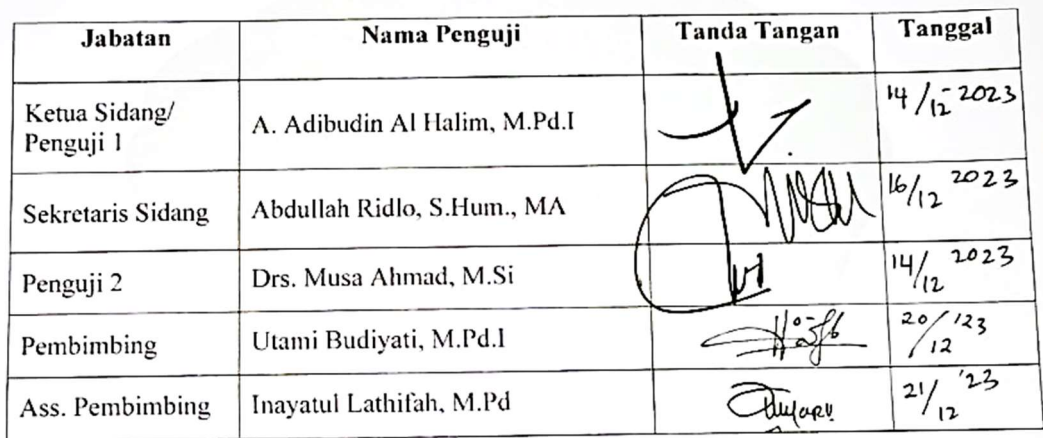 Jabatan Nama Penguji Tanda Tangan Tanggal
Ketua Sidang/
Penguji 1 A. Adibudin Al Halim, M.Pd.I 14/12-2023
Sekretaris Sidang Abdullah Ridlo, S.Hum., MA 16/12 2023
Penguji 2 Drs. Musa Ahmad, M.Si 14/12 2023
Pembimbing Utami Budiyati, M.Pd.I 20/12 '23
Ass. Pembimbing Inayatul Lathifah, M.Pd 21/12 '23